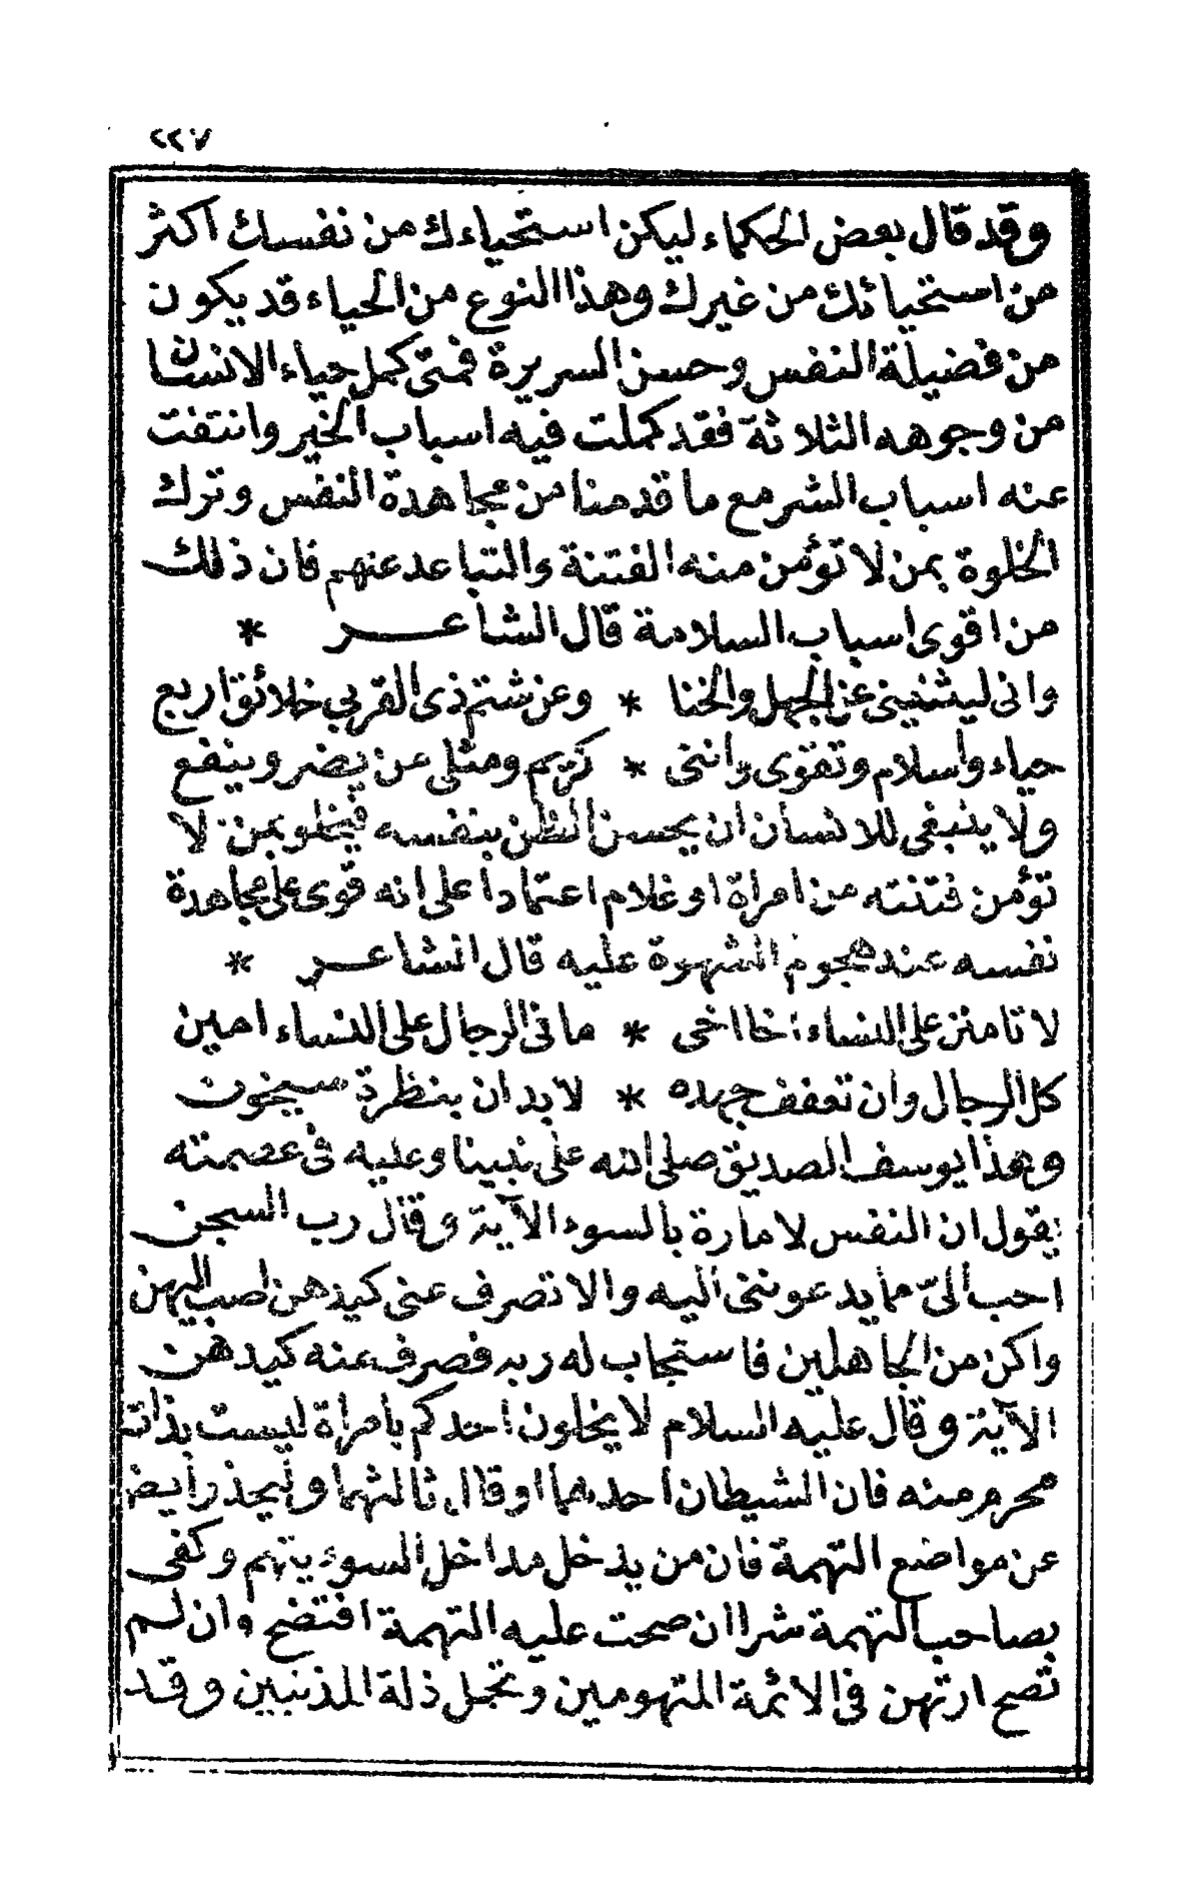 ٢٢٧
وقد قال بعض الحكماء ليكن استحياءك من نفسك اكثر
من استحيائك من غيرك وهذا النوع من الحياء قد يكون
من فضيلة النفس وحسن السريرة فمتى كمل حياء الانسان
من وجوهه الثلاثة فقد كملت فيه اسباب الخير وانتفت
عنه اسباب الشر مع ما قدمنا من مجاهدة النفس وترك
الخلوة بمن لا تؤمن منه الفتنة والتباعد عنهم فان ذلك
من اقوى اسباب السلامة قال الشاعر *
وانى ليثنينى عن الجهل والخنا * وعن شتم ذى القربي خلائق اربع
حياء واسلام وتقوى واننى * كريم ومثلى عن يضر وينفع
ولا ينبغى للانسان ان يحسن الظن بنفسه فيخلو بمن لا
تؤمن فتنته من امراة او غلام اعتمادا على انه قوى على مجاهدة
نفسه عند هجوم الشهوة عليه قال الشاعر *
لا تامنن على النساء اخا اخى * ما فى الرجال على النساء امين
كل الرجال وان تعفف جهده * لا بد ان بنظرة سيخون
وهذا يوسف الصديق صلى الله على نبينا وعليه فى عصمته
يقول ان النفس لامارة بالسوء الآية وقال رب السجن
احب الىّ مما يدعوننى اليه والا تصرف عنى كيدهن اصب اليهن
واكن من الجاهلين فاستجاب له ربه فصرف عنه كيدهن
الآية وقال عليه السلام لا يخلون احدكم بامراة ليست بذات
محرم منه فان الشيطان احدهما او قال ثالثهما وليحذر ايض
عن مواضع التهمة فان من يدخل مداخل السوء يتهم وكفى
بصاحب التهمة شرا ان صحت عليه التهمة افتضح وان لم
تصح ارتهن فى الائمة المتهومين وتحمل ذلة المذنبين وقد